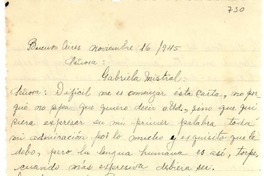 730
Buenos Aires noviembre 16/945
Señora:
Gabriela Mistral.
Señora: Difícil me es comenzar esta carta, no por
qué no sepa que quiero decir a Ud, sino que qui
siera expresar en mi primer palabra toda
mi admiración por lo mucho y exquisito que le
debo, pero la lengua humana es así, torpe,
cuando más expresiva debiera ser.